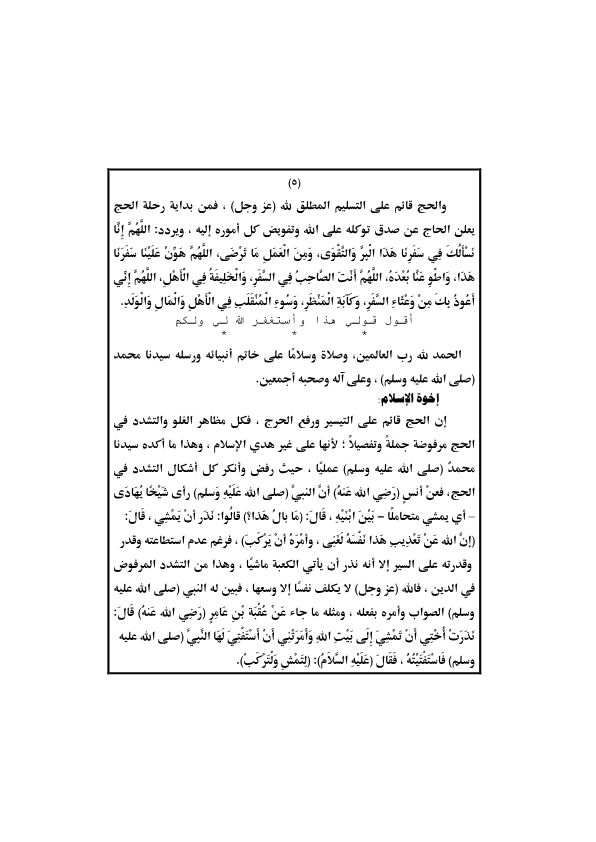 (٥)
والحج قائم على التسليم المطلق لله (عز وجل) ، فمن بداية رحلة الحج
يعلن الحاج عن صدق توكله على الله وتفويض كل أموره إليه ، ويردد: اللَّهُمَّ إِنَّا
نَسْأَلُكَ فِي سَفَرِنَا هَذَا الْبِرَّ وَالتَّقْوَى، وَمِنَ الْعَمَلِ مَا تَرْضَى، اللَّهُمَّ هَوِّنْ عَلَيْنَا سَفَرَنَا
هَذَا، وَاطْوِ عَنَّا بُعْدَهُ، اللَّهُمَّ أَنْتَ الصَّاحِبُ فِي السَّفَرِ، وَالْخَلِيفَةُ فِي الْأَهْلِ، اللَّهُمَّ إِنِّي
أَعُوذُ بِكَ مِنْ وَعْثَاءِ السَّفَرِ، وَكَآبَةِ الْمَنْظَرِ، وَسُوءِ الْمُنْقَلَبِ فِي الْأَهْلِ وَالْمَالِ وَالْوَلَدِ.
أقول قولي هذا وأستغفر الله لي ولكم
* * *
الحمد لله رب العالمين، وصلاة وسلامًا على خاتم أنبيائه ورسله سيدنا محمد
(صلى الله عليه وسلم) ، وعلى آله وصحبه أجمعين.
إخوة الإسلام:
إن الحج قائم على التيسير ورفع الحرج ، فكل مظاهر الغلو والتشدد في
الحج مرفوضة جملةً وتفصيلاً ؛ لأنها على غير هدي الإسلام ، وهذا ما أكده سيدنا
محمدٌ (صلى الله عليه وسلم) عمليًا ، حيث رفض وأنكر كل أشكال التشدد في
الحج، فعنْ أنسٍ (رَضِي الله عَنهُ) أنَّ النبيَّ (صلى الله عَلَيْهِ وَسلم) رأى شَيْخًا يُهَادَى
– أي يمشي متحاملًا – بَيْنَ ابْنَيْهِ ، قَالَ: (مَا بالُ هَذا؟) قالُوا: نَذَر أنْ يَمْشِي ، قَالَ:
(إنَّ الله عَنْ تَعْذِيبِ هَذَا نَفْسَهُ لَغَنِى ، وأمْرَهُ أنْ يَرْكَبَ) ، فرغم عدم استطاعته وقدر
وقدرته على السير إلا أنه نذر أن يأتي الكعبة ماشيًا ، وهذا من التشدد المرفوض
في الدين ، فالله (عز وجل) لا يكلف نفسًا إلا وسعها ، فبين له النبي (صلى الله عليه
وسلم) الصواب وأمره بفعله ، ومثله ما جاء عَنْ عُقْبَةَ بْنِ عَامِرٍ (رَضِي الله عَنهُ) قَالَ:
نَذَرَتْ أُخْتِي أَنْ تَمْشِيَ إِلَى بَيْتِ اللهِ وَأَمَرَتْنِي أَنْ أَسْتَفْتِيَ لَهَا النَّبِيَّ (صلى الله عليه
وسلم) فَاسْتَفْتَيْتُهُ ، فَقَالَ (عَلَيْهِ السَّلَامُ): (لِتَمْشِ وَلْتَرْكَبْ).